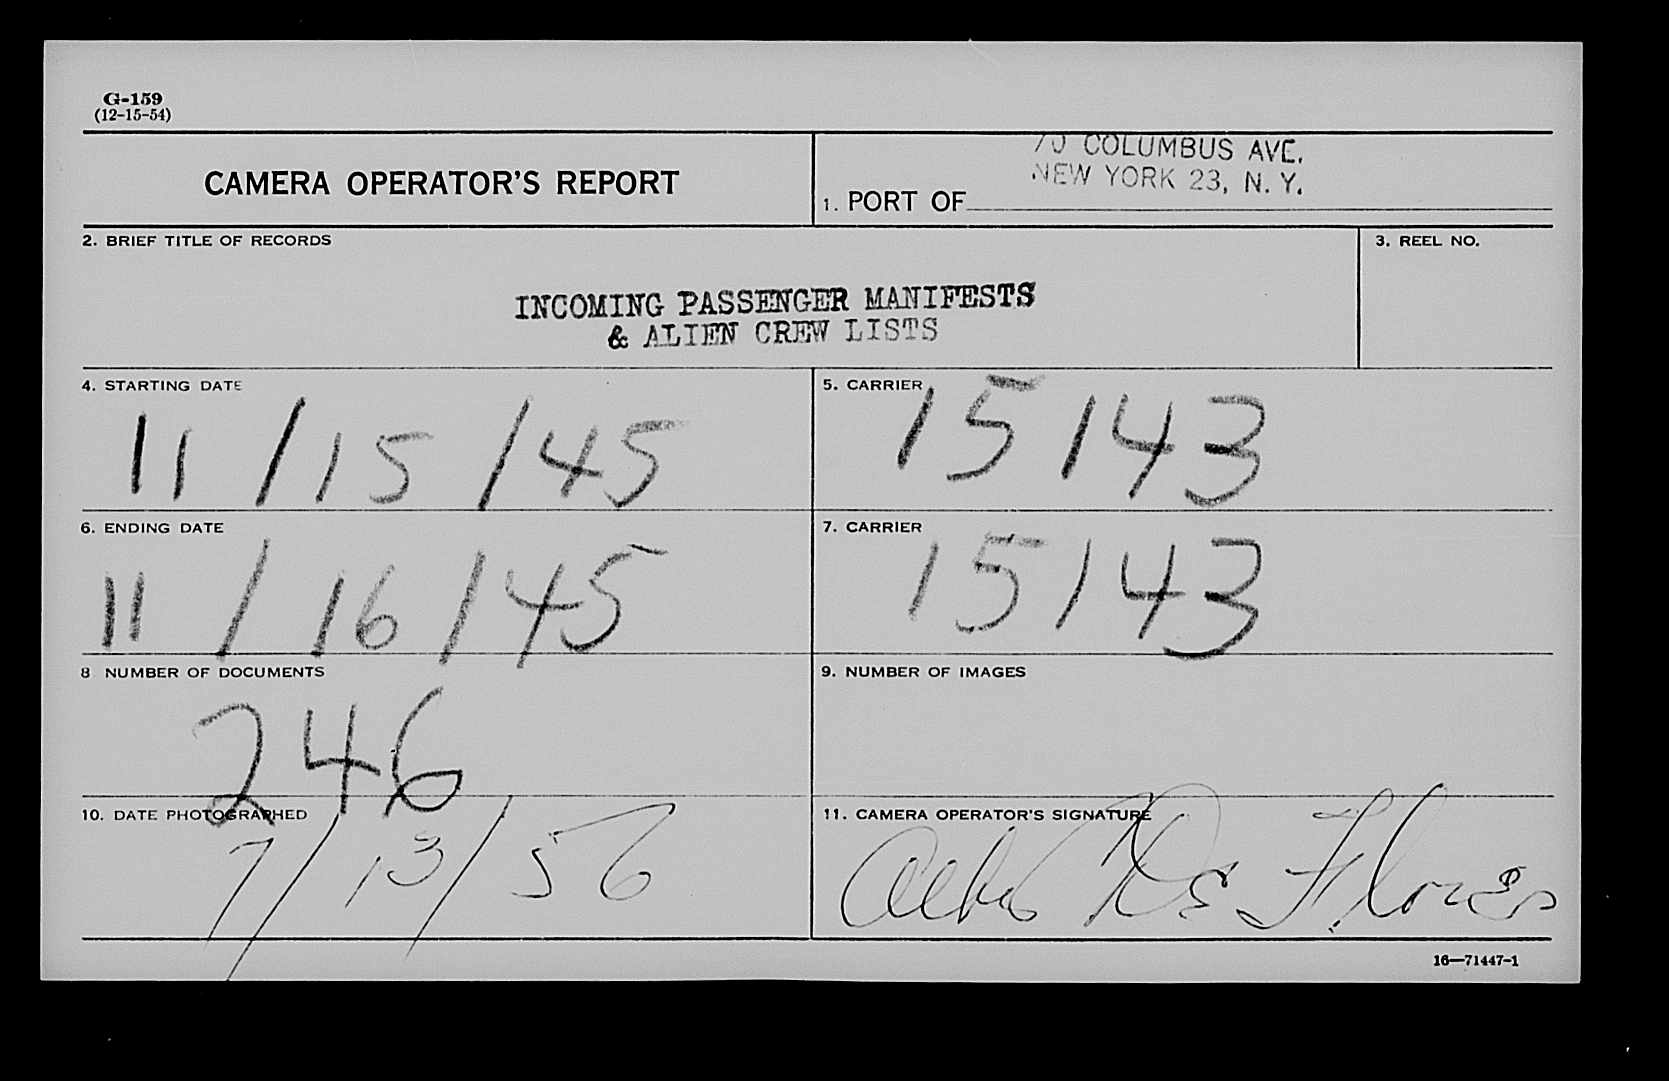 G-159
(12-15-54)
CAMERA OPERATOR'S REPORT
70 COLUMBUS AVE.
NEW YORK 23, N. Y.
1. PORT OF
2. BRIEF TITLE OF RECORDS
3. REEL NO.
INCOMING PASSENGER MANIFESTS
& ALIEN CREW LISTS
4. STARTING DATE
11/15/45
5. CARRIER
15143
6. ENDING DATE
11/16/45
7. CARRIER
15143
8 NUMBER OF DOCUMENTS
246
9. NUMBER OF IMAGES
10. DATE PHOTOGRAPHED
7/13/56
11. CAMERA OPERATOR'S SIGNATURE
De Flores
16—71447-1